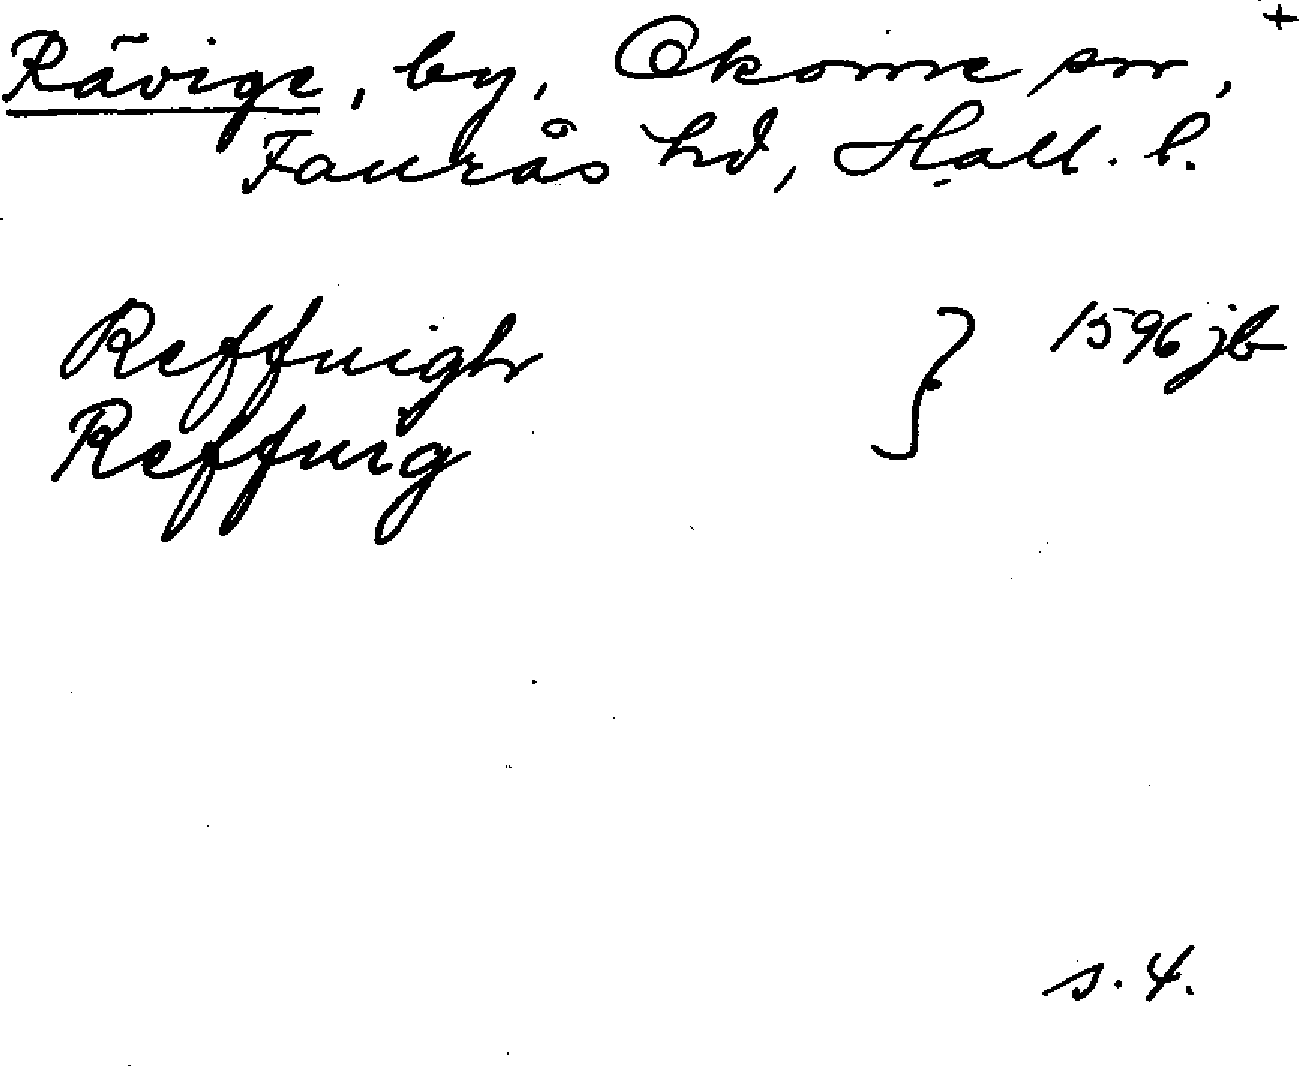 +
Rävige, by, Okome sn,
Faurås hd, Hall. l.
Reffuigh } 1596 jb
Reffuig
s. 4.